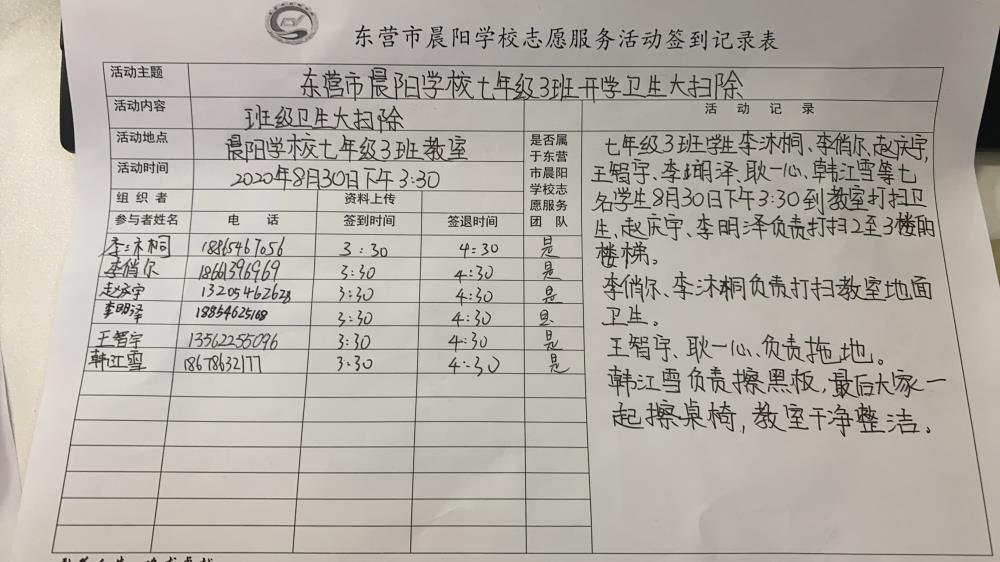 东营市晨阳学校志愿服务活动签到记录表
活动主题 东营市晨阳学校七年级3班开学卫生大扫除
活动内容 班级卫生大扫除
活动地点 晨阳学校七年级3班教室
活动时间 2020年8月30日下午3:30
组织者 资料上传
参与者姓名 电话 签到时间 签退时间
是否属
于东营
市晨阳
学校志
愿服务
团队
李沐桐 18865467056 3:30 4:30 是
李俏尔 18661396969 3:30 4:30 是
赵庆宇 13205462628 3:30 4:30 是
李明泽 18854625168 3:30 4:30 是
王智宇 13562255096 3:30 4:30 是
韩江雪 18678632177 3:30 4:30 是
活动记录
七年级3班学生李沐桐、李俏尔、赵庆宇,
王智宇、李明泽、耿一心、韩江雪等七
名学生8月30日下午3:30到教室打扫卫
生、赵庆宇、李明泽负责打扫2至3楼的
楼梯。
李俏尔、李沐桐负责打扫教室地面
卫生。
王智宇、耿一心、负责拖地。
韩江雪负责擦黑板,最后大家一
起擦桌椅,教室干净整洁。